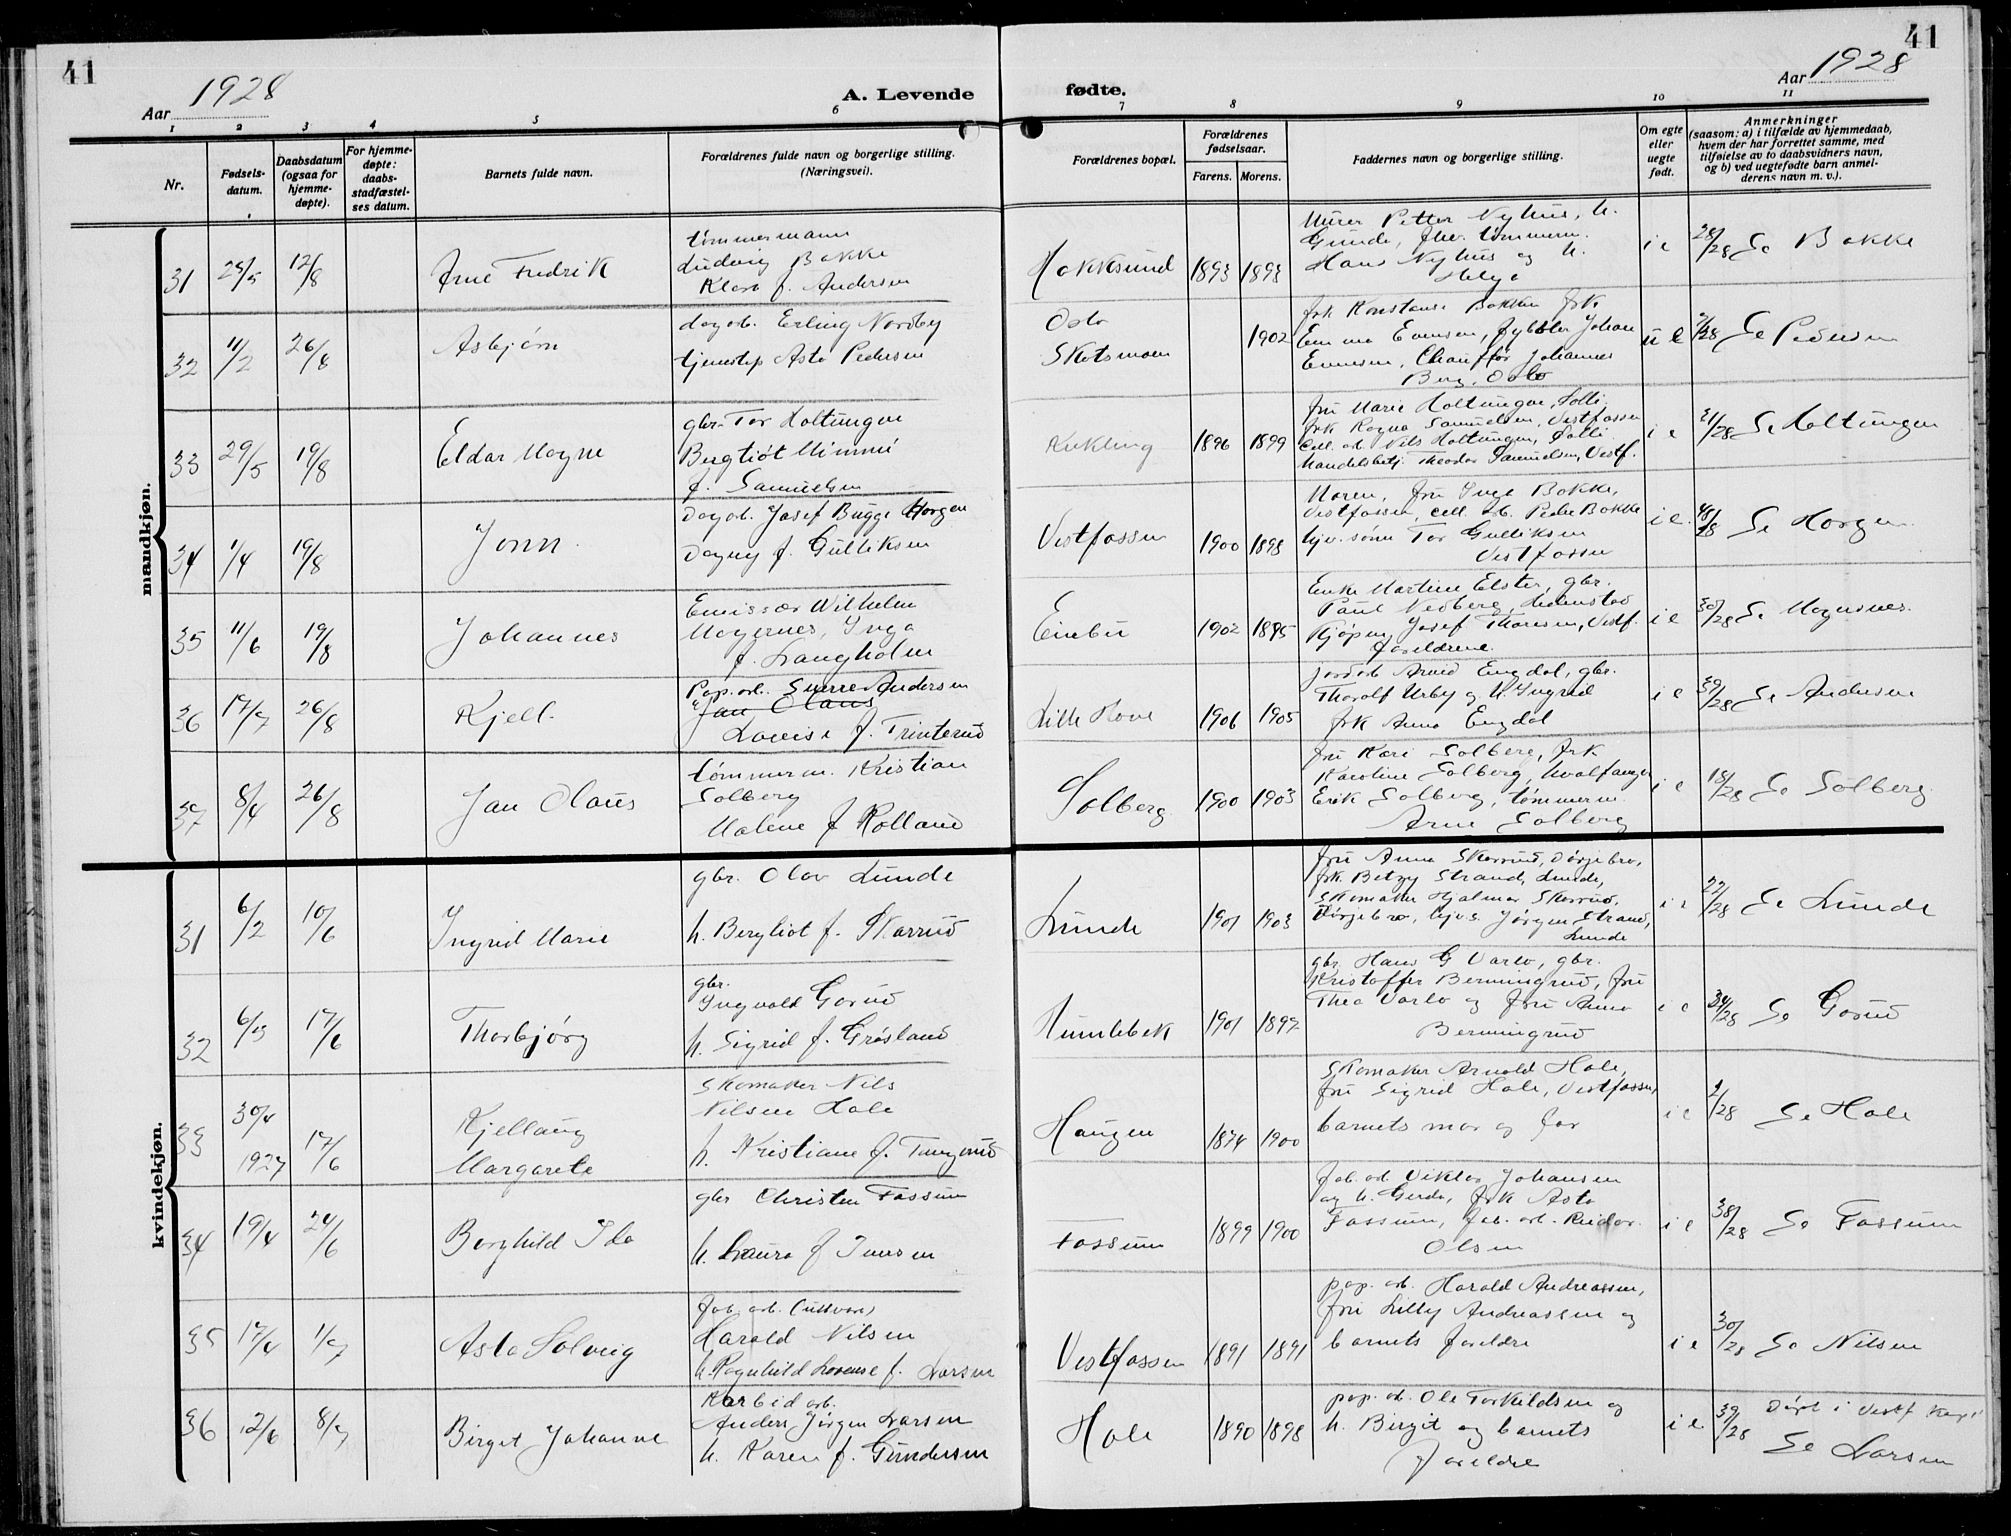 41
Aar 1928
A. Levende
1 2 3 4 5 6
Nr.
Fødsels-
datum.
Daabsdatum
(ogsaa for
hjemme-
døpte).
For hjemme-
døpte:
daabs-
stadfæstel-
ses datum.
Barnets fulde navn.
Forældrenes fulde navn og borgerlige stilling.
(Næringsvei).
mandkjøn.
31 12/8 Arne Fredrik
tømmermann
Ludvig Bakke
Klara f. Andersen
32 11/2 26/8 Asbjørn
dagarb. Erling Nordby
Asta Pedersen
33 29/5 19/8 Eldar Magne
gbr. Tor Holtungen
Bergliot Mimmi
f. Samuelsen
34 1/4 19/8 Jonn
Dagarb. Josef Bugge Horgen
Dagny f. Gulliksen
35 11/6 19/8 Johannes
Emissær Wilhelm
Magernes, Inga
f. Langholm
36 17/7 26/8 Kjell
Pap. arb. Sverre Andersen
Jan Olaus
Lovise f. Trinterud
37 8/4 26/8 Jan Olaus
tømmerm. Kristian
Solberg
Malene f Rolland
kvindekjøn.
31 6/2 10/6 Ingrid Marie
gbr. Olav Lunde
h. Bergliot f. Skarrud
32 17/6 Thorbjørg
gbr.
Ingvald Gorud
h. Sigrid f. Grøsland
33 30/4 1927 17/6 Kjellaug
Margarete
Skomaker Nils
Nilsen Hole
h. Kristiane f.
34 19/4 24/6 Borghild Ida
gbr Christen Fossum
h. Laura f Jensen
35 17/4 1/7 Asta Solveig
fab. arb.
Harald Nilsen
h. Ragnhild Lovense f. Larsen
36 12/6 8/7 Birgit Johanne
Karbidarb.
Anders Jørgen Larsen
h. Karen f. Gundersen
41
Aar 1928
fødte.
7 8 9 10 11
Forældrenes bopæl.
Forældrenes
fødselsaar.
Farens. Morens.
Faddernes navn og borgerlige stilling.
Om egte
eller
uegte
født.
Anmerkninger
(saasom: a) i tilfælde av hjemmedaab,
hvem der har forrettet samme, med
tilføielse av to daabsvidners navn,
og b) ved uegtefødte barn anmel-
derens navn m. v.).
Hokksund 1893 1893
Murer Petter Nyhus, h.
Gunda, tømmerm.
Hans Nyhus og h.
Helga
i e 28/28 Se Bakke
Oslo
Skotsmoen 1902
frk Konstanse Bakken frk
Emma Evensen, Johan
Evensen, Chauffør Johannes
Berg, Oslo
u e Se Pedersen
1896 1899
fru Marie Holtungen,
frk Ragna Samuelsen, Vestfossen
Cell. arb. Nils Holtungen,
Handelsbetj. Theodor Samuelsen, Vestf.
i e Se Holtungen
Vestfossen 1900 1898
Moren, fru Inga Bakke,
Vestfossen, cell. arb. Peder Bakke
hjv. sønn Tor Gulliksen
Vestfossen
i e. Se Horgen
Einebu 1902 1895
Enke Martine Elster, gbr.
Paul Nedberg,
Kjøpm. Josef Thoresen, Vestf.
foreldrene.
i e 30/28 Se Magernes.
Lille Hove 1906 1905
Arvid Engdal, gbr.
Thorolf Urby og h. Ingrid
frk Anna Engdal
i e 39/28 Se Andersen
Solberg 1900 1903
fru Kari Solberg, frk
Karoline Solberg, hvalfanger
Erik Solberg, tømmerm.
Arne Solberg
i e 18/28 Se Solberg.
Lunde 1901 1903
fru Anna Skarrud, Dørjebro,
frk. Betzy Strand, Lunde,
Skomaker Hjalmar Skarrud,
Dørjebro, hjv. s. Jørgen Strand,
Lunde
i e 22/28 Se Lunde
Humlebek 1901 1897
gbr. Hans G Varlo, gbr.
Kristoffer Bermingrud, fru
Thea Varlo og fru Anna
Bermingrud
i e 34/28 Se Gorud
Haugen 1874 1900
Skomaker Arnold Hole,
fru Sigrid Hole, Vestfossen,
barnets mor og far
i e Se Hole
Fossum 1899 1900
fab. arb. Viktor Johansen
og h. Gerda, frk Asta
Fossum, fab. arb. Reidar
Olsen
i e 38/28 Se Fossum
Vestfossen 1891 1891
pap. arb. Harald Andreassen,
fru Lilly Andreassen og
barnets foreldre
i e 30/28 Se Nilsen
Hole 1890 1898
pap. arb. Ole Torkildsen og
h. Birgit og barnets
foreldre
i e 39/28 Døpt i Vestf
Se Larsen